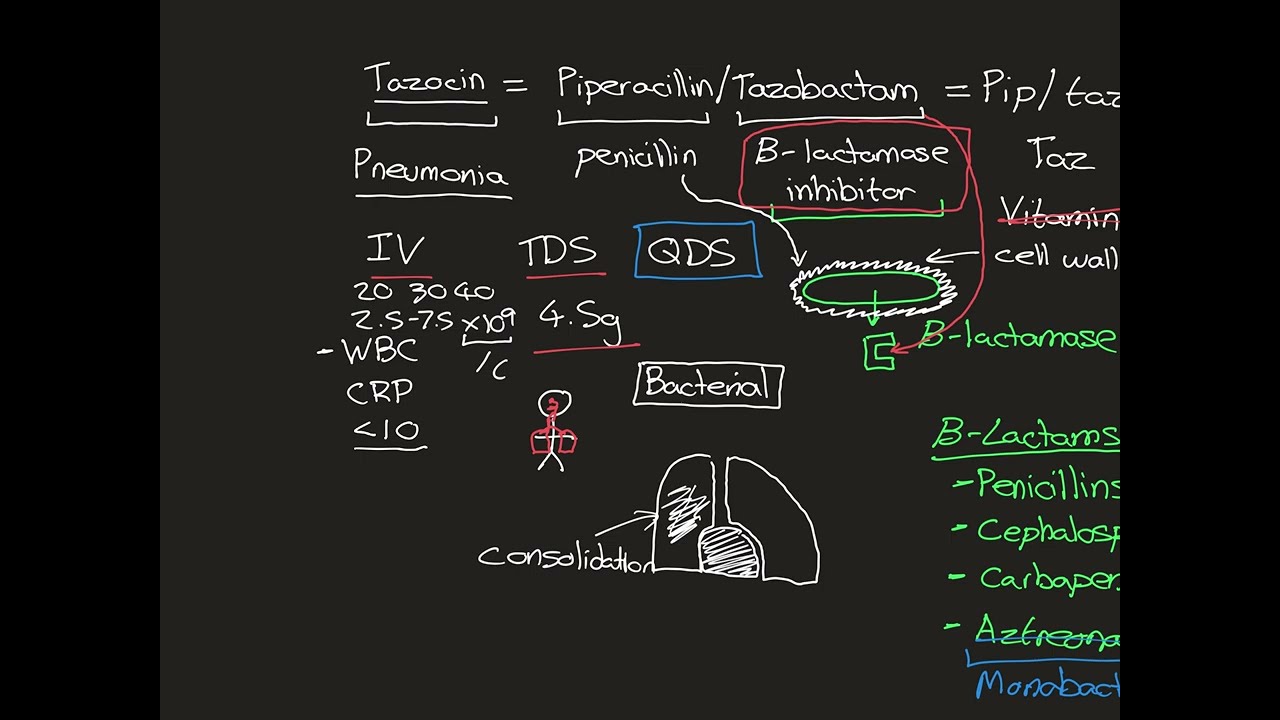 Tazocin = Piperacillin/Tazobactam = Pip/taz
Pneumonia
penicillin
B-lactamase
inhibitor
Taz
Vitamin
cell wall
IV
TDS
QDS
20 30 40
2.5-7.5 x10⁹
/L
4.5g
- WBC
CRP
<10
B-lactamase
Bacterial
Consolidation
B-Lactams
- Penicillins
- Cephalosp
- Carbapen
- Aztreona
Monobact